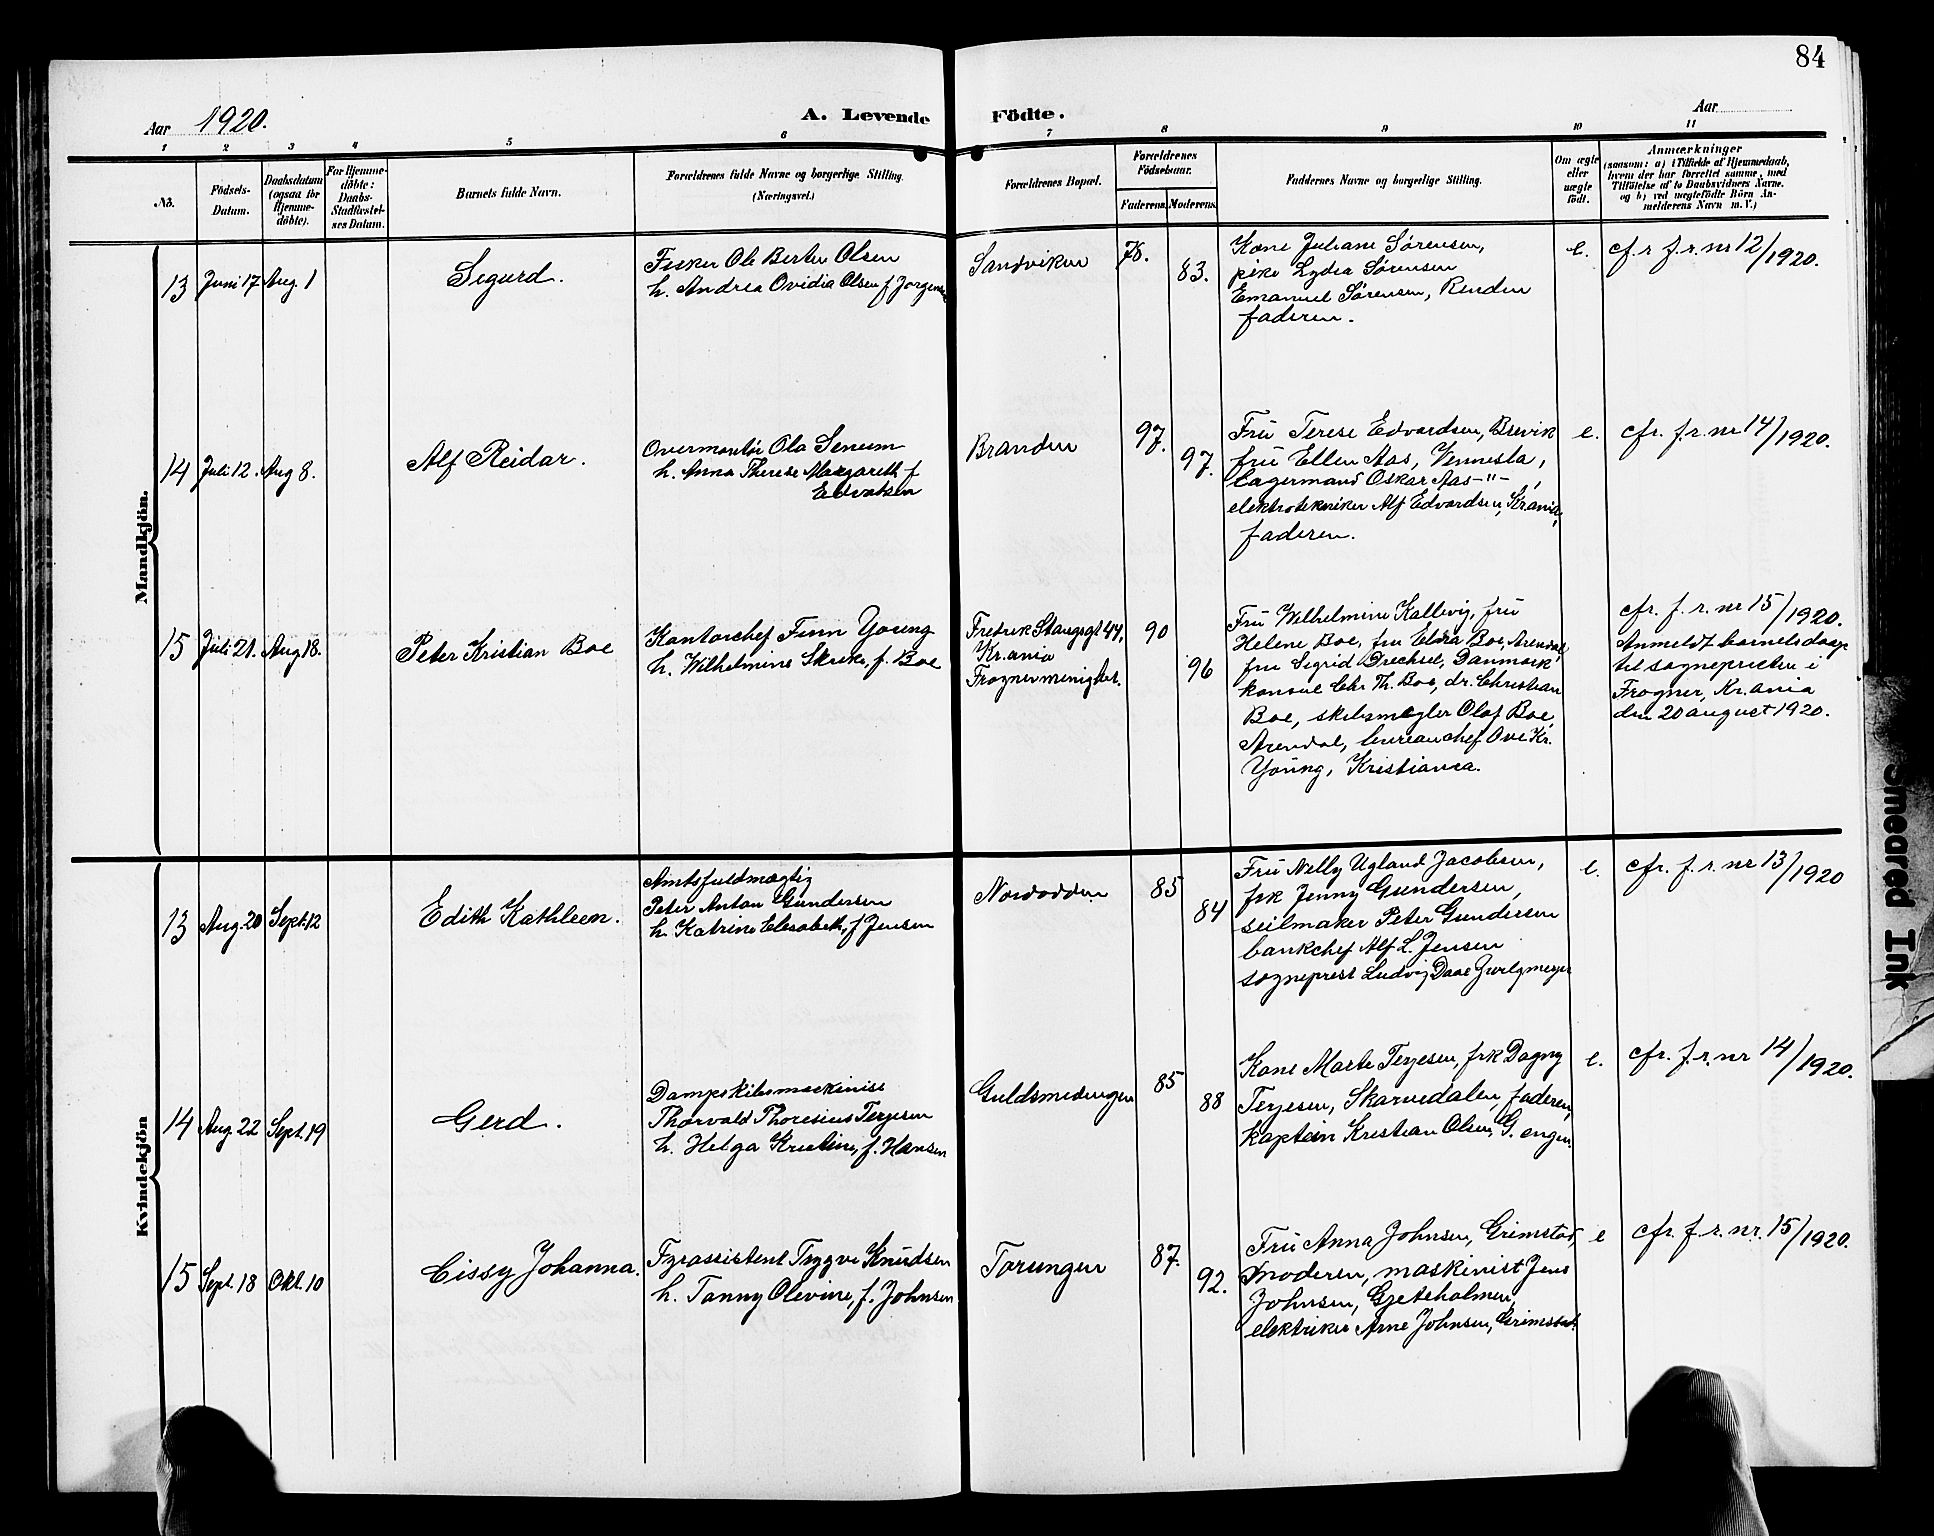 84
Aar 1920.
A. Levende Födte.
Aar
1 2 3 4 5 6 7 8 9 10 11
No.
Födsels-Datum.
Daabsdatum (ogsaa for Hjemme-döbte).
For Hjemme-döbte: Daabs-Stadfæstel-ses Datum.
Barnets fulde Navn.
Forældrenes fulde Navne og borgerlige Stilling.
(Næringsvei.)
Forældrenes Bopæl.
Forældrenes Födselsaar.
Faderens. Moderens.
Faddernes Navne og borgerlige Stilling.
Om ægte eller uægte födt.
Anmærkninger
(saasom: a) i Tilfælde af Hjemmedaab,
hvem der har forrettet samme, med
Tilföielse af to Daabsvidners Navne,
og b) ved uægtefödte Börn An-
melderens Navn m. V.)
Mandkjön.
13 Juni 17 Aug. 1
Sigurd.
Fisker Ole Berten Olsen
h. Andrea Ovidia Olsen f. Jorgensen
Sandviken
78.
83.
Kone Juliane Sørensen,
pike Lydia Sørensen
Emanuel Sørensen, Renden
faderen.
e.
cf.r f.r. nr 12/1920.
14 Juli 12. Aug 8.
Alf Reidar.
Overmontør Ola Senum
h. Anna Therese Margareth f
Edvardsen
Branden
97.
97.
Fru Terese Edvardsen, Brevik
fru Ellen Aas, Vennesla,
lagermand Oskar Aas -"-,
elektrotekniker Alf Edvardsen, Kr.ania,
faderen.
e.
cfr. f.r. nr 14/1920.
15 Juli 21. Aug. 18.
Peter Kristian Boe
Kontorchef Finn Young
h. Wilhelmine Skreke, f. Boe
Fredrik Stangsgt 44,
Kr.ania
Frogner menighet.
90
96
Fru Wilhelmine Kallevig, fru
Helene Boe, fru Eldra Boe, Arendal,
fru Sigrid Drechsel, Danmark,
konsul Chr. Th. Boe, dr. Christian
Boe, skibsmegler Olaf Boe,
Arendal, bureauchef Ove Kr.
Young, Kristiania.
cfr. f. r. nr 15/1920.
Anmeldt barnets daap
til sognepresten i
Frogner, Kr.ania
den 20 august 1920.
Kvindekjön
13 Aug. 20 Sept. 12
Edith Kathleen.
Amtsfuldmægtig
Peter Anton Gundersen
h. Katrine Elesabeth, f Jensen
Nordodden
85
84
Fru Nelly Ugland Jacobsen,
frk Jenny Gundersen,
seilmaker Peter Gundersen
bankchef Alf L. Jensen
sogneprest Ludvig Daae Zwilgmeyer
e.
cfr. f.r. nr 13/1920
14 Aug. 22 Sept. 19
Gerd.
Dampskibsmaskinist
Thorvald Thoresius Terjesen
h. Helga Kristine, f. Hansen
Guldsmedengen
85
88
Kone Marte Terjesen, frk Dagny
Terjesen, Skarvedalen, faderen,
kaptein Kristian Olsen, G. engen.
e.
cfr. f.r. nr 14/1920.
15 Sept. 18 Okt. 10
Cissy Johanna.
Fyrassistent Trygve Knudsen
h. Tanny Olevine, f. Johnsen
Torungen
87.
92.
Fru Anna Johnsen, Grimstad,
moderen, maskinist Jens
Johnsen, Gjeteholmen,
elektriker Arne Johnsen, Grimstad.
e
cfr. f. r. nr. 15/1920.
Smeared Ink